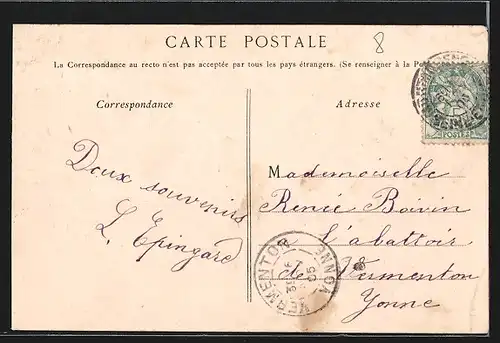 8
CARTE POSTALE
La Correspondance au recto n'est pas acceptée par tous les pays étrangers. (Se renseigner à la
Correspondance
Adresse
POSTES
Doux souvenirs
L. Epingard
Mademoiselle
Renée Boivin
l'abattoir
de Vermenton
Yonne
VERMENTON
YONNE
05